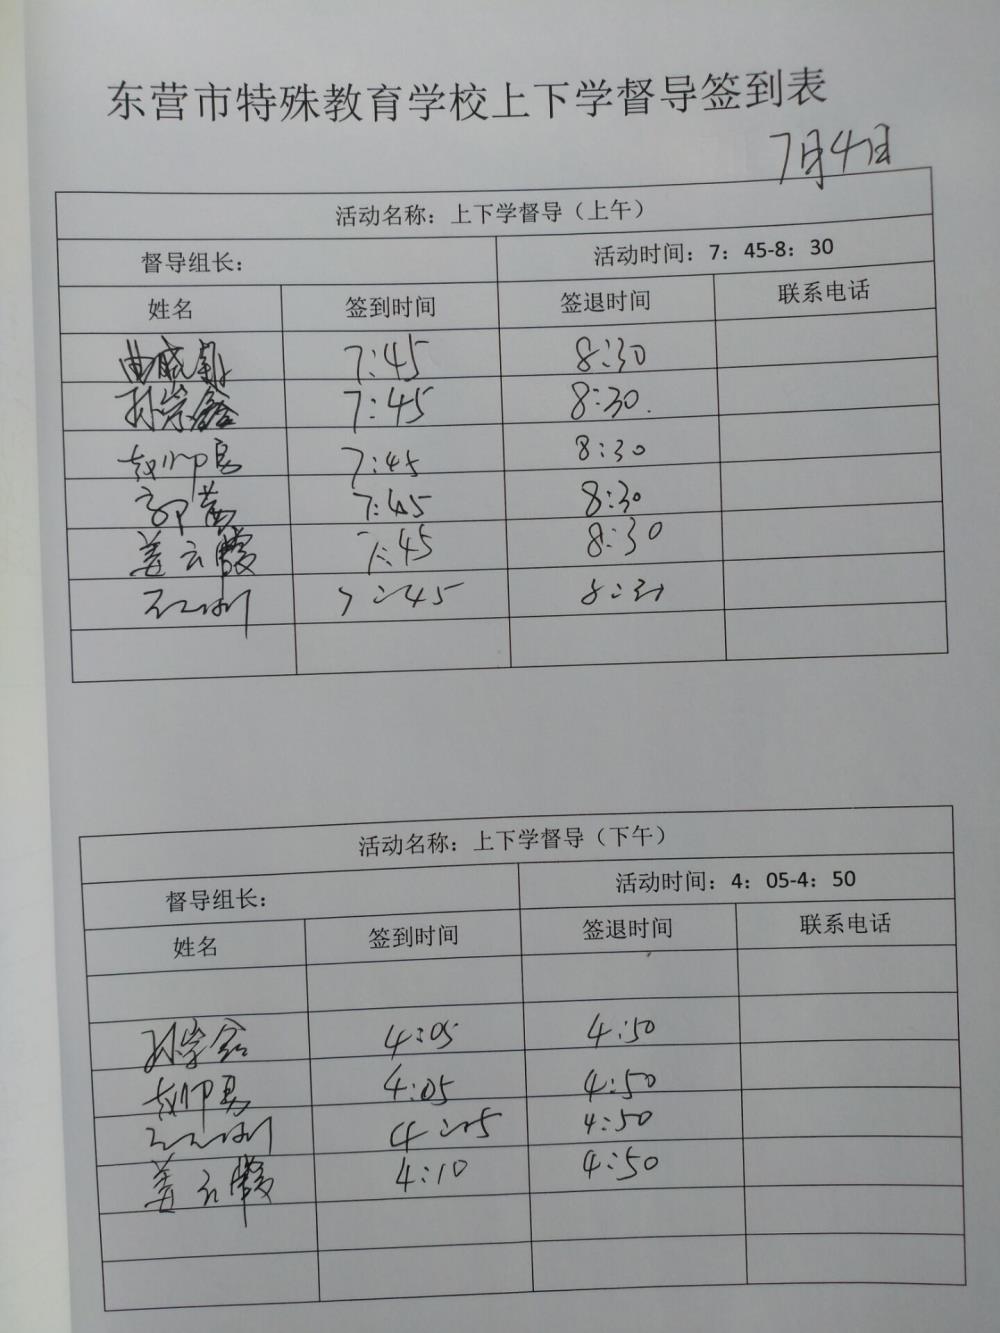 东营市特殊教育学校上下学督导签到表
7月4日
活动名称：上下学督导（上午）
督导组长： 活动时间：7：45-8：30
姓名 签到时间 签退时间 联系电话
7:45 8:30
孙崇鑫 7:45 8:30
赵帅男 7:45 8:30
郭茜 7:45 8:30
姜云霞 7:45 8:30
7:45 8:30
活动名称：上下学督导（下午）
督导组长： 活动时间：4：05-4：50
姓名 签到时间 签退时间 联系电话
孙崇鑫 4:05 4:50
赵帅男 4:05 4:50
4:05 4:50
姜云霞 4:10 4:50